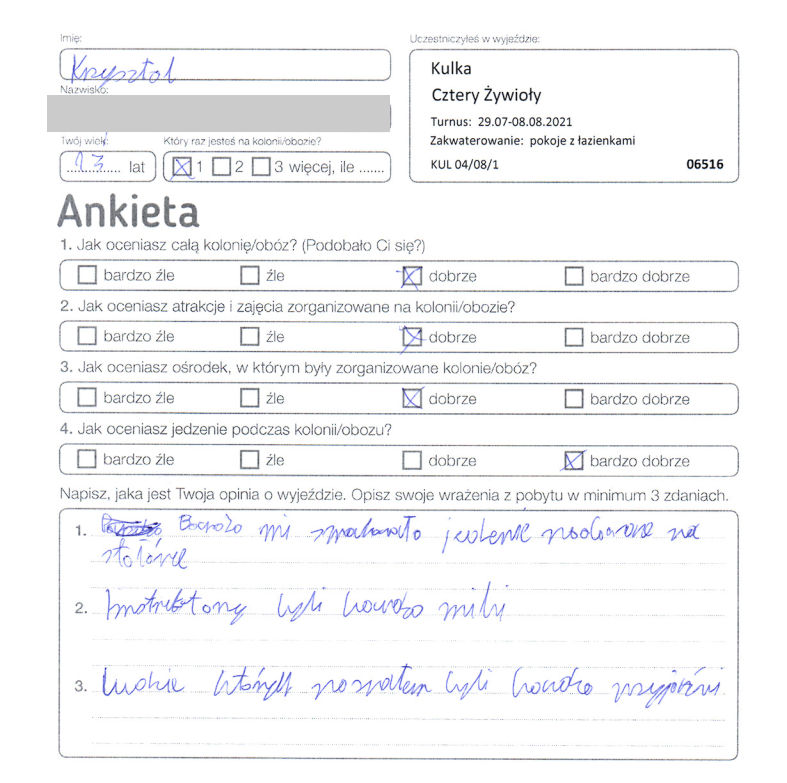 Imię:
Krzysztof
Nazwisko:
Twój wiek:
Który raz jesteś na kolonii/obozie?
13 lat
1 2 3 więcej, ile .......
Uczestniczyłeś w wyjeździe:
Kulka
Cztery Żywioły
Turnus: 29.07-08.08.2021
Zakwaterowanie: pokoje z łazienkami
KUL 04/08/1 06516
Ankieta
1. Jak oceniasz całą kolonię/obóz? (Podobało Ci się?)
bardzo źle źle dobrze bardzo dobrze
2. Jak oceniasz atrakcje i zajęcia zorganizowane na kolonii/obozie?
bardzo źle źle dobrze bardzo dobrze
3. Jak oceniasz ośrodek, w którym były zorganizowane kolonie/obóz?
bardzo źle źle dobrze bardzo dobrze
4. Jak oceniasz jedzenie podczas kolonii/obozu?
bardzo źle źle dobrze bardzo dobrze
Napisz, jaka jest Twoja opinia o wyjeździe. Opisz swoje wrażenia z pobytu w minimum 3 zdaniach.
1. Bardzo mi smakowało jedzenie podawane na
stołówce
2. Instruktorzy byli bardzo mili
3. Ludzie których poznałem byli bardzo przyjaźni